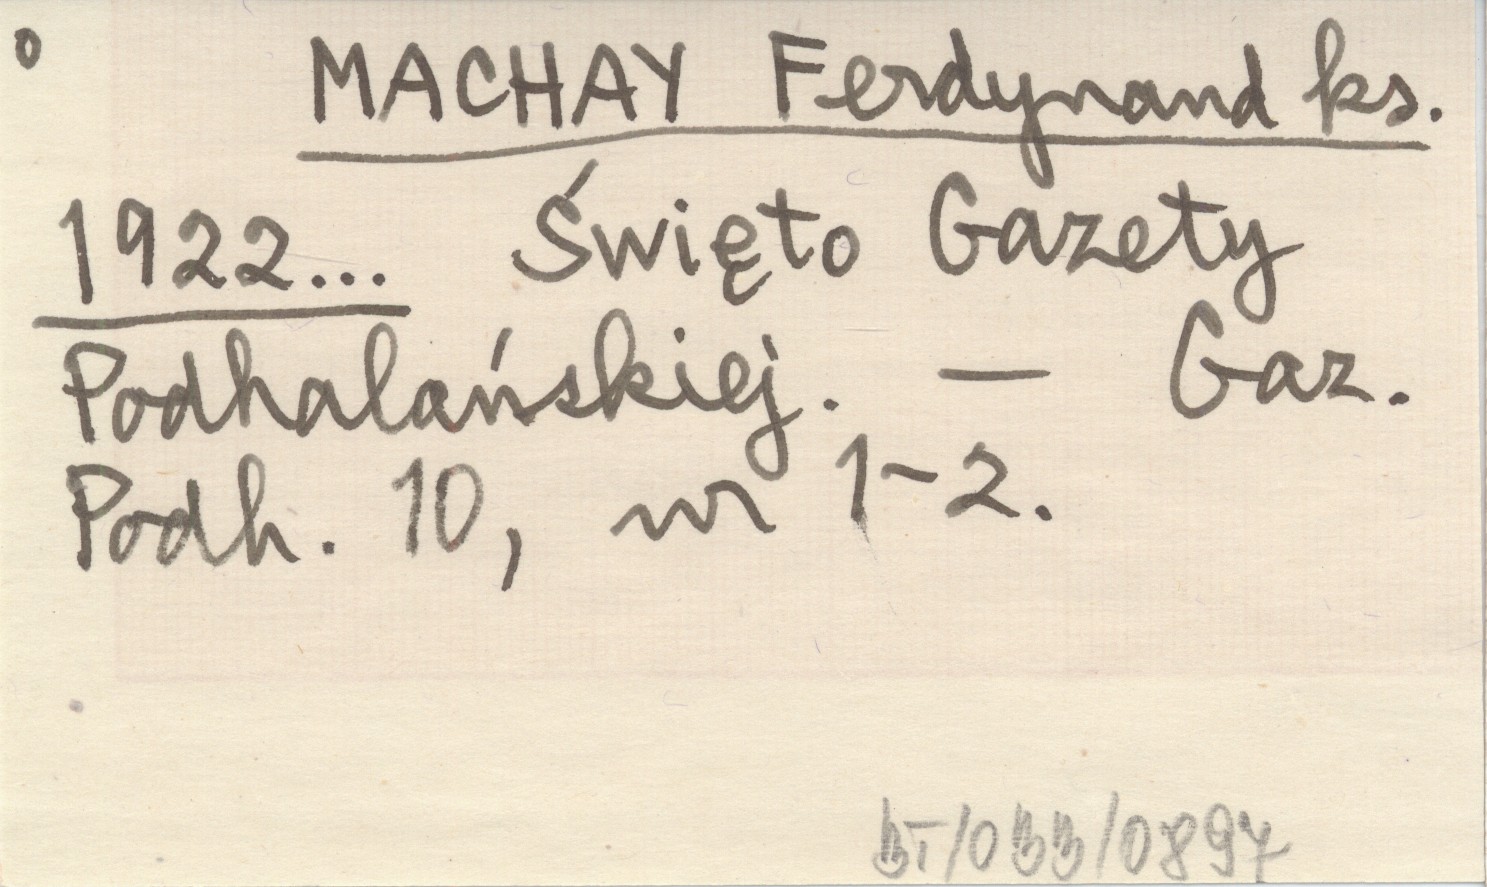 o
MACHAY Ferdynand ks.
1922... Święto Gazety
Podhalańskiej. — Gaz.
Podh. 10, nr 1-2.
BT/033/0897